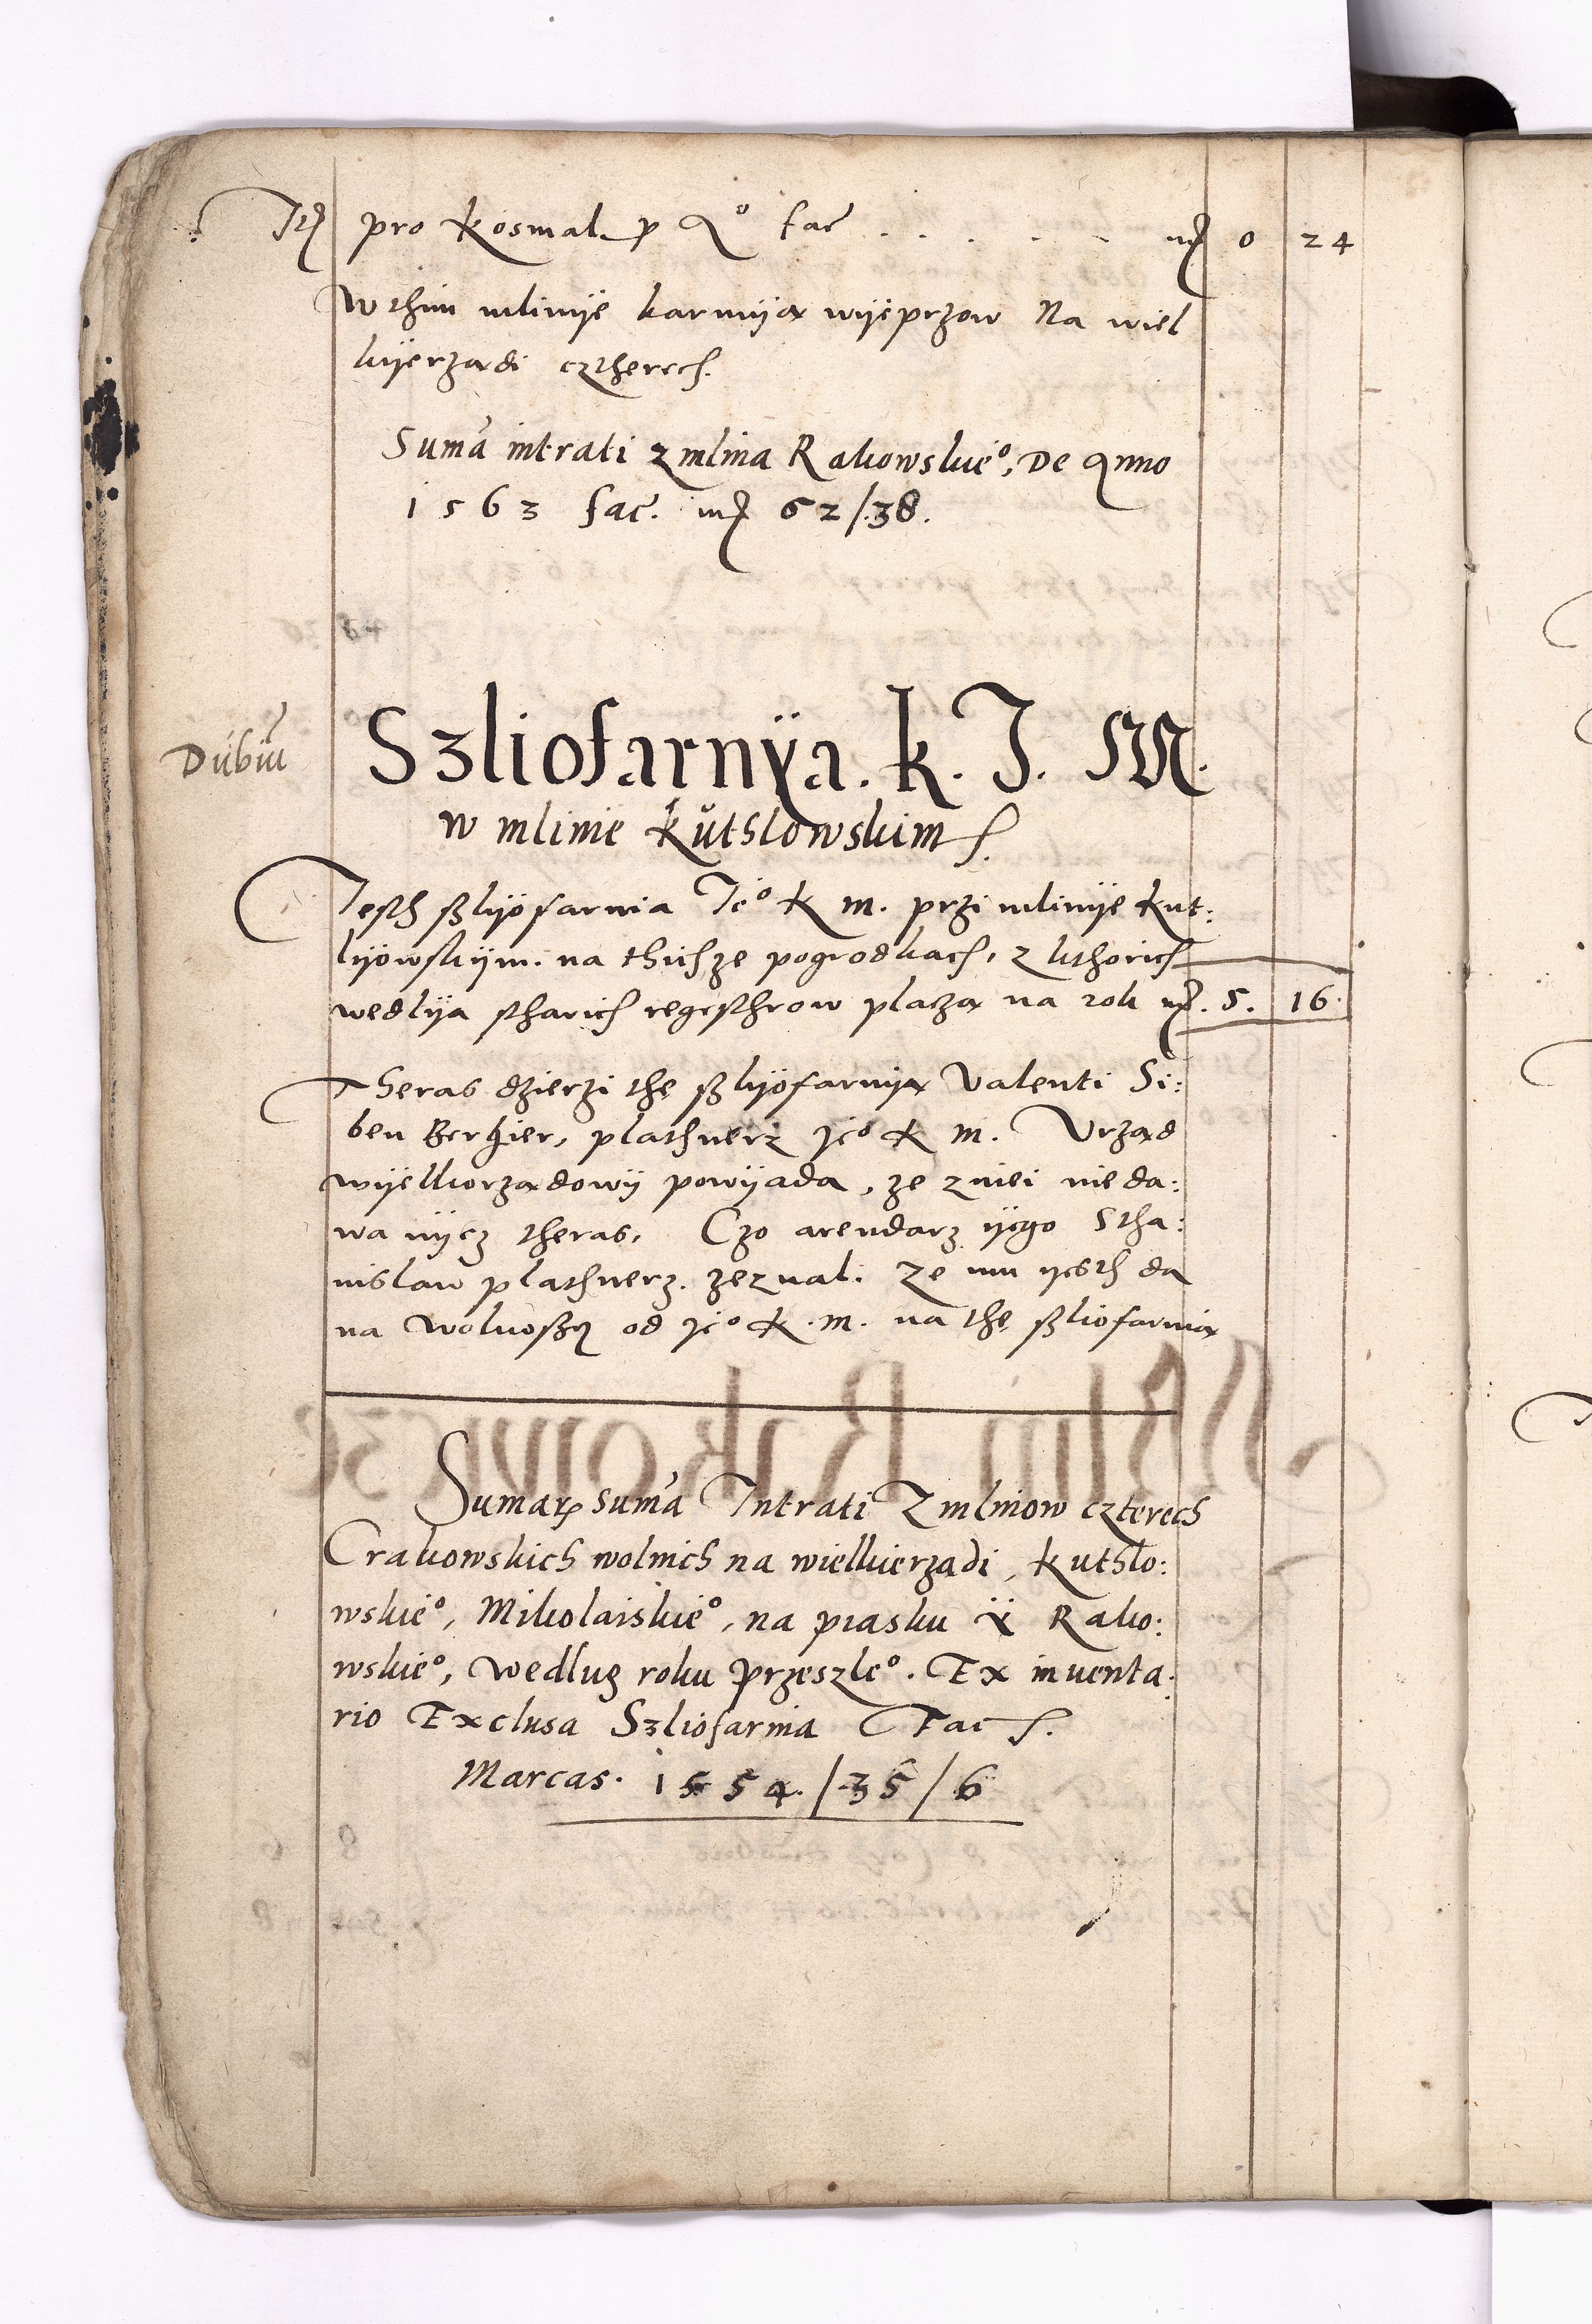 Itē pro kosmal. p Qº fač . . . . . . mͬ 0 24
W thim mlinÿe karmÿą wÿeprzow Na wiel
kÿerządi cztherech.
Suma intrati z mlina Rakowskieº, De Anno
1563 fac. mͬ 62/.38.
Dubiū
Szliofarnÿa. k. J. M.
w mlinie kuthlowskim
Jesth slÿofarnia Jeº K m. przi mlinÿe kut:
lÿowskÿm. na thich ze pogrodkach, z kthorich
wedlÿa stharich regesthrow płaczą na rok mͬ. 5. 16.
Theras dzierzi thę slÿofarnÿą Valenti Si:
ben Berger, plathnerz jeº K m. Vrząd
wÿelkorządowÿ powÿada, ze zniei nie da:
wa nÿcz theras, Czo arendarz ÿego Stha:
nislaw plathnerz. zeznal. Ze mu jesth da
na wolnosc od jeº K. m. na thę sliofarnią
Sumar. suma Intrati Z mlinow czterech
Crakowskich wolnich na wielkierządi, kuthlo:
wskieº, Mikolaiskieº, na piasku ÿ Rako:
wskieº, wedlug roku przeszleº. Ex inuenta:
rio Exclusa Szliofarnia Fac
Marcas. 1554./35/6